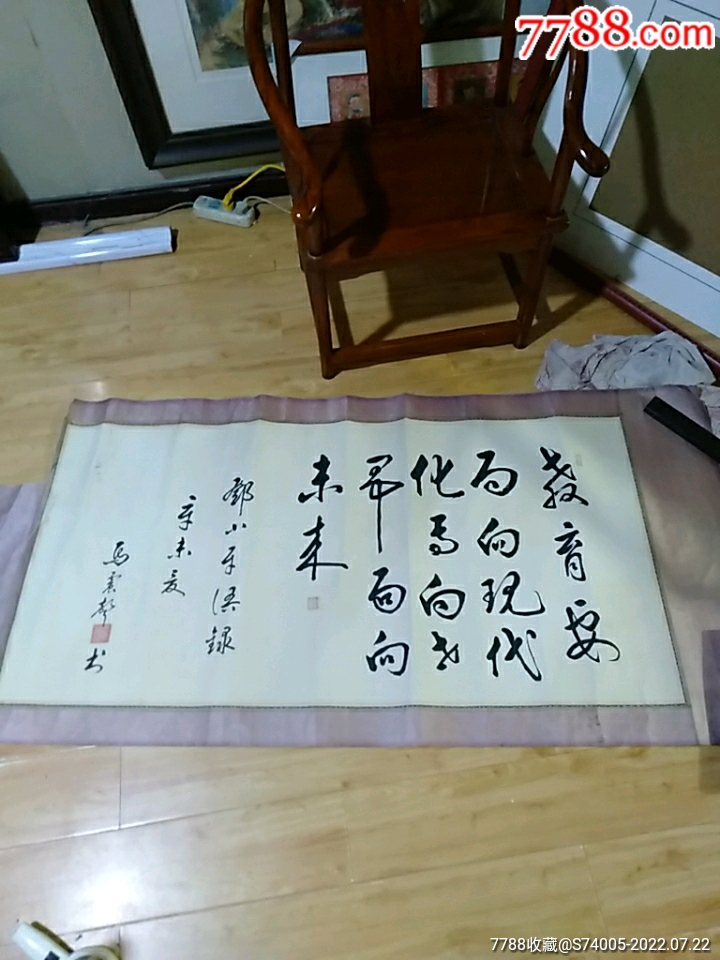 7788.com
教育要
面向现代
化面向世
界面向
未来
邓小平语録
辛未夏
马云声书
7788收藏@S74005-2022.07.22